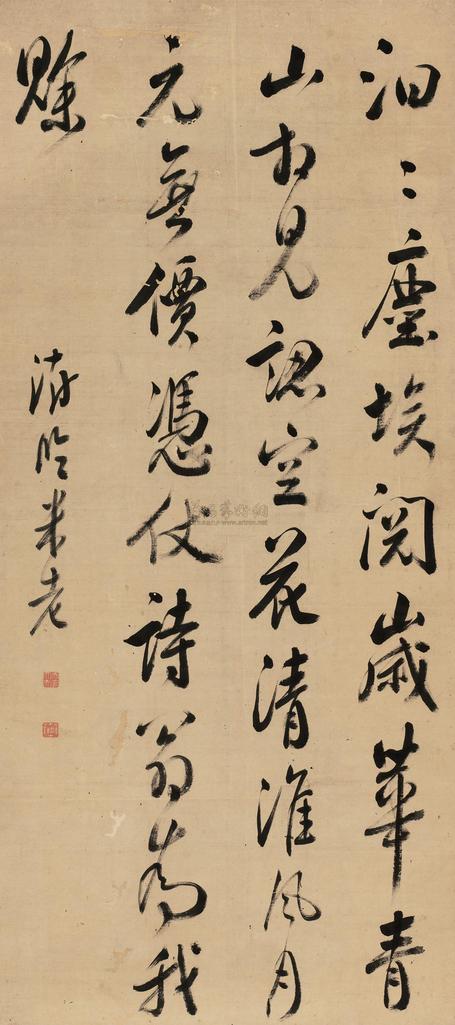 汩〻塵埃閱歲華青
山相見認空花清淮風月
元無價憑仗詩翁為我
賖
臨米老